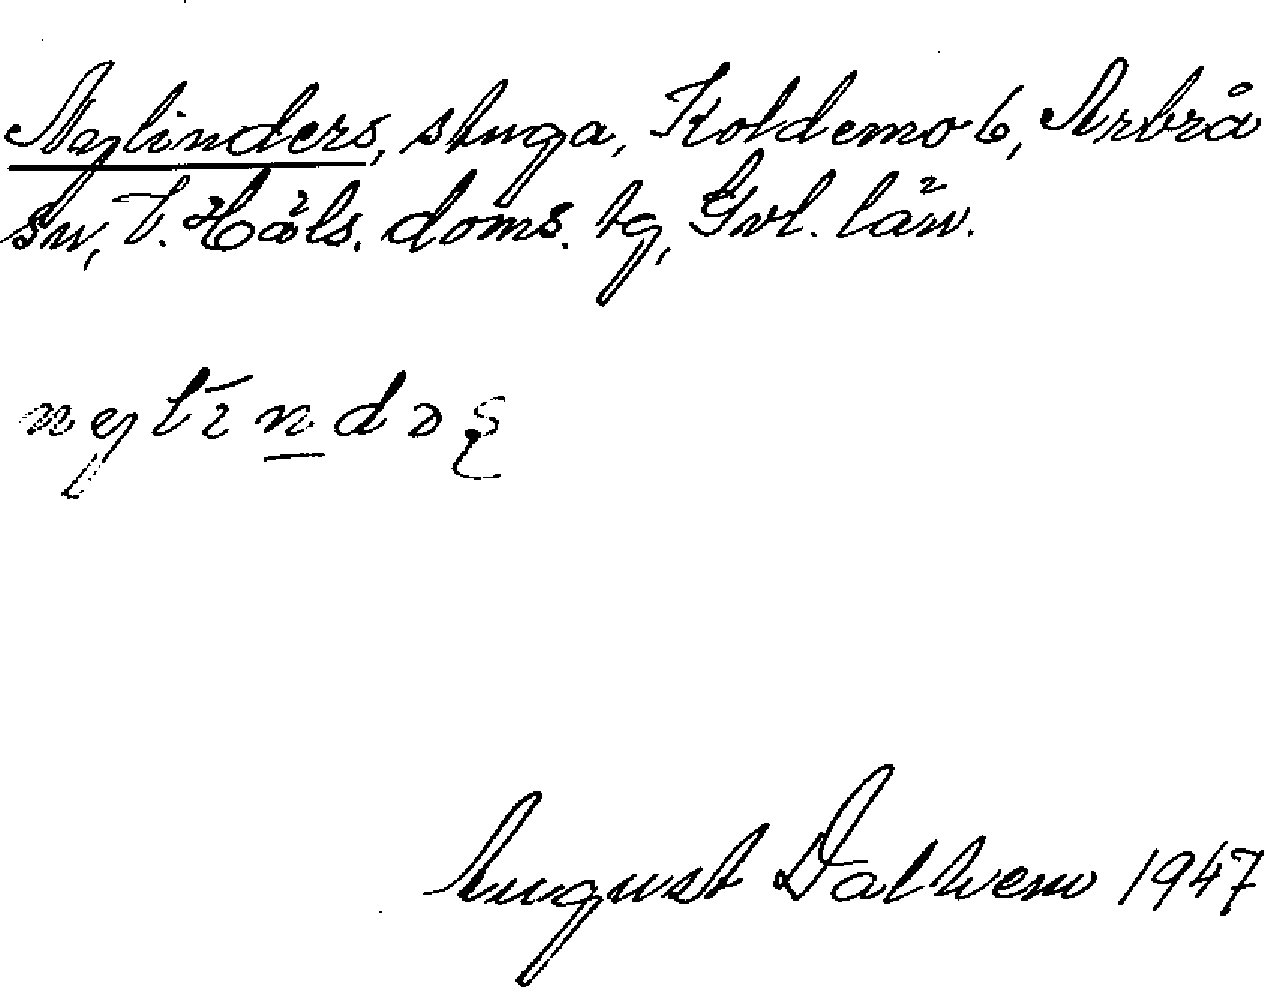 Nylinders, stuga, Koldemo 6, Arbrå
sn, V. Häls. doms. tg, Gvl. län.
nylindəs
August Dalhem 1947